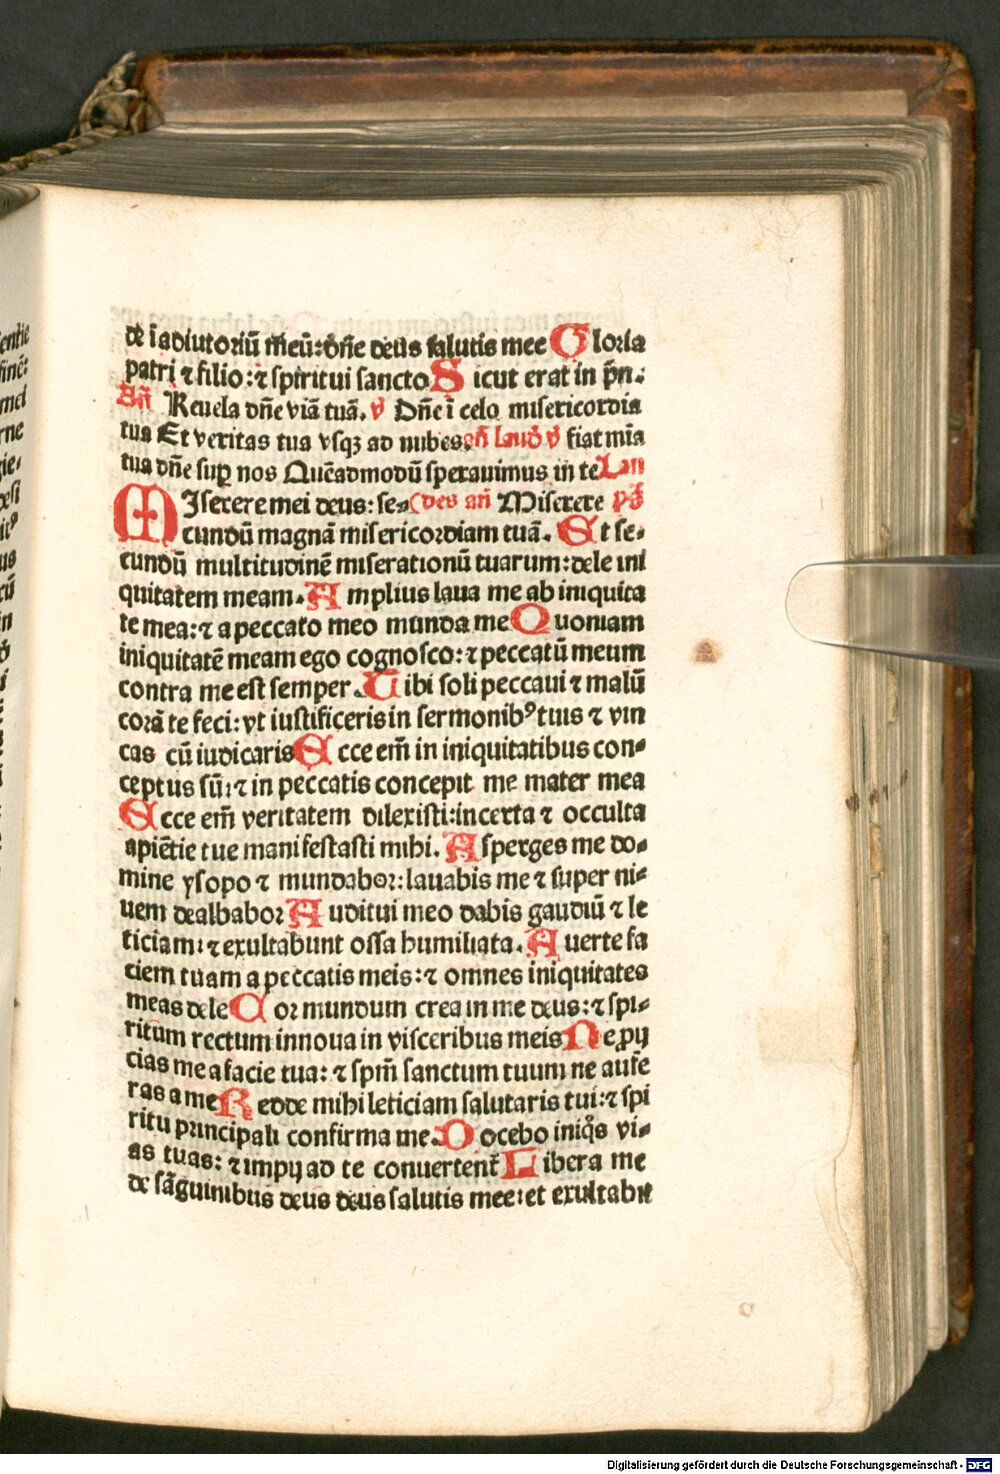 de ī adiutoriū meū: dn̄e deus salutis mee Gloria
patri ⁊ filio: ⁊ spiritui sancto Sicut erat in p̄n.
Añ Reuela dn̄e viā tuā. ꝟ Dn̄e ī celo misericordia
tua Et veritas tua vsqꝫ ad nubes. añ Laud ꝟ fiat mīa
tua dn̄e suꝑ nos Quēadmodū sperauimus in te Lau
MIserere mei deus: se- (des añ Miserere ps
cundū magnā misericordiam tuā. Et se-
cundū multitudinē miserationū tuarum: dele ini
quitatem meam. Amplius laua me ab iniquita
te mea: ⁊ a peccato meo munda me Quoniam
iniquitatē meam ego cognosco: ⁊ peccatū meum
contra me est semper. Tibi soli peccaui ⁊ malū
corā te feci: vt iustificeris in sermonibꝰ tuis ⁊ vin
cas cū iudicaris Ecce em̄ in iniquitatibus con-
ceptus sū: ⁊ in peccatis concepit me mater mea
Ecce em̄ veritatem dilexisti: incerta ⁊ occulta
apiētie tue manifestasti mihi. Asperges me do-
mine ysopo ⁊ mundabor: lauabis me ⁊ super ni-
uem dealbabor Auditui meo dabis gaudiū ⁊ le
ticiam: ⁊ exultabunt ossa humiliata. Auerte fa
ciem tuam a peccatis meis: ⁊ omnes iniquitates
meas dele Cor mundum crea in me deus: ⁊ spi-
ritum rectum innoua in visceribus meis Ne ꝓij
cias me a facie tua: ⁊ spm̄ sanctum tuum ne aufe
ras a me Redde mihi leticiam salutaris tui: ⁊ spi
ritu principali confirma me. Docebo iniq̄s vi-
as tuas: ⁊ impij ad te conuertent̄ Libera me
de sāguinibus deus deus salutis mee: et exultabit
Digitalisierung gefördert durch die Deutsche Forschungsgemeinschaft - DFG